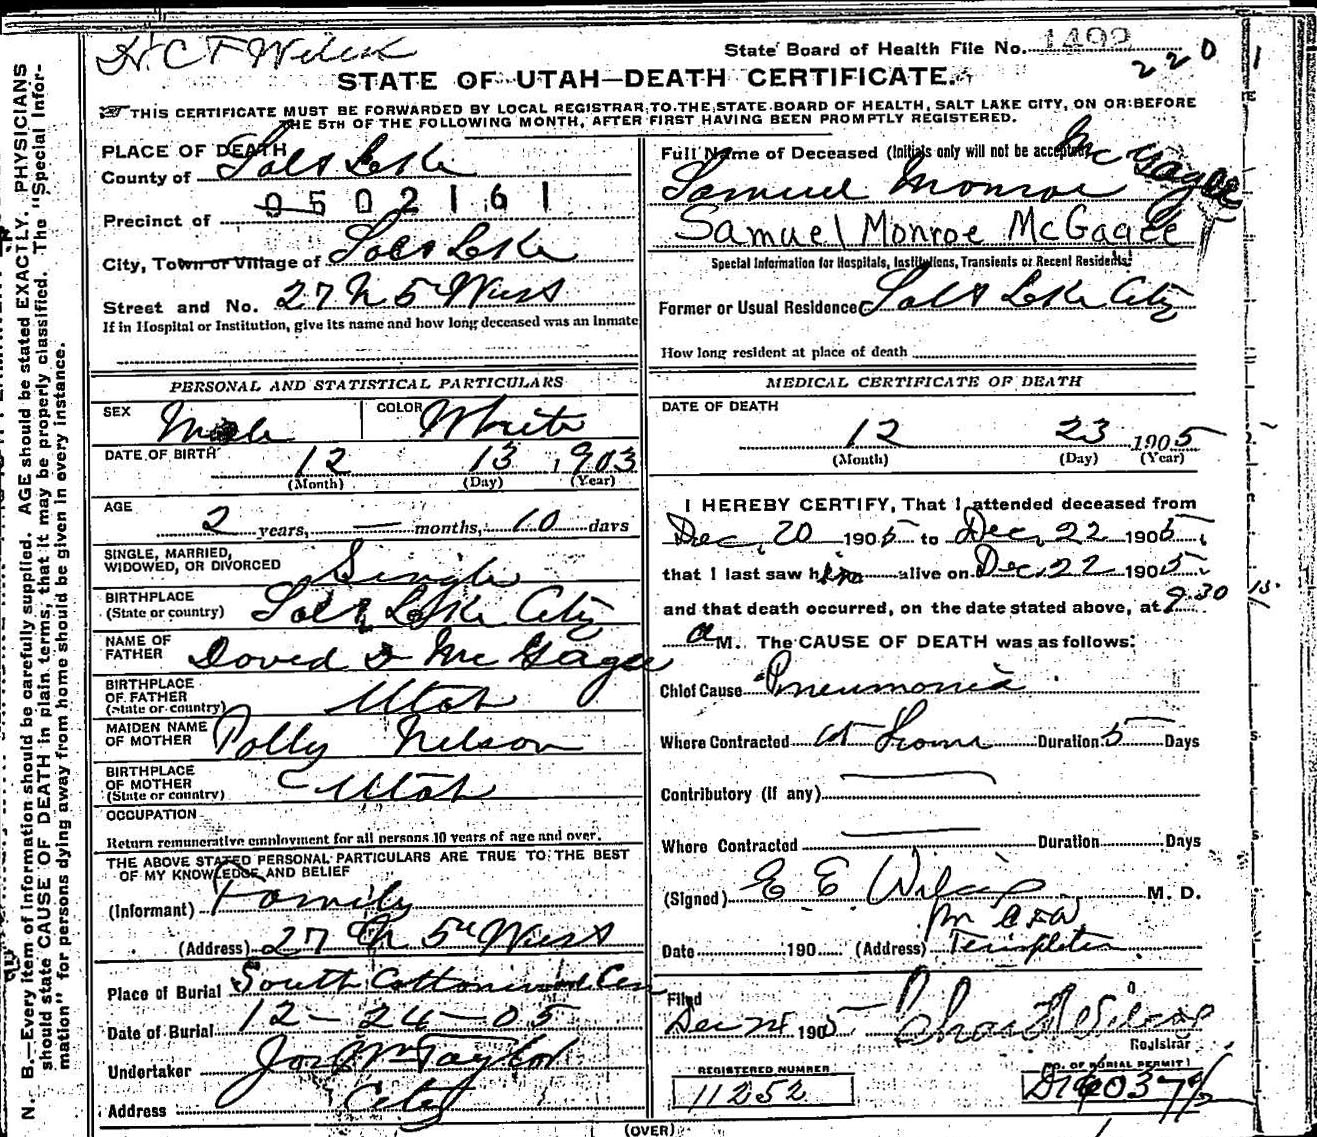 State Board of Health File No. 1492
220
STATE OF UTAH—DEATH CERTIFICATE.
THIS CERTIFICATE MUST BE FORWARDED BY LOCAL REGISTRAR TO THE STATE BOARD OF HEALTH, SALT LAKE CITY, ON OR BEFORE
THE 5TH OF THE FOLLOWING MONTH, AFTER FIRST HAVING BEEN PROMPTLY REGISTERED.
PLACE OF DEATH
County of Salt Lake
0502161
Precinct of
City, Town or Village of Salt Lake
Street and No. 27 N 5 West
If in Hospital or Institution, give its name and how long deceased was an inmate
PERSONAL AND STATISTICAL PARTICULARS
SEX Male COLOR White
DATE OF BIRTH 12 13 1903
(Month) (Day) (Year)
AGE
2 years, — months, 10 days
SINGLE, MARRIED,
WIDOWED, OR DIVORCED Single
BIRTHPLACE
(State or country) Salt Lake City
NAME OF
FATHER David D McGagee
BIRTHPLACE
OF FATHER
(State or country) Utah
MAIDEN NAME
OF MOTHER Polly Nelson
BIRTHPLACE
OF MOTHER
(State or country) Utah
OCCUPATION
Return remunerative employment for all persons 10 years of age and over.
THE ABOVE STATED PERSONAL PARTICULARS ARE TRUE TO THE BEST
OF MY KNOWLEDGE AND BELIEF
(Informant) Family
(Address) 27 N 5" West
Place of Burial South Cottonwood Cem
Date of Burial 12-24-05
Undertaker Jos Wm Taylor
Address City
Full Name of Deceased (Initials only will not be accepted)
Samuel Monroe McGagee
Samuel Monroe McGagee
Special Information for Hospitals, Institutions, Transients or Recent Residents.
Former or Usual Residence Salt Lake City
How long resident at place of death
MEDICAL CERTIFICATE OF DEATH
DATE OF DEATH
12 23 1905
(Month) (Day) (Year)
I HEREBY CERTIFY, That I attended deceased from
Dec, 20 1905 to Dec, 22 1905,
that I last saw him alive on Dec. 22 1905
and that death occurred, on the date stated above, at 9.30
a M. The CAUSE OF DEATH was as follows:
Chief Cause Pneumonia
Where Contracted at Home Duration 5 Days
Contributory (if any)
Where Contracted Duration Days
(Signed) E E Wilcox M. D.
Date 190 (Address) Templeton
Filed
Dec 24 1905
Registrar
REGISTERED NUMBER
11252
NO. OF BURIAL PERMIT
(OVER)
N. B.—Every item of information should be carefully supplied. AGE should be stated EXACTLY. PHYSICIANS
should state CAUSE OF DEATH in plain terms, that it may be properly classified. The "Special Infor-
mation" for persons dying away from home should be given in every instance.